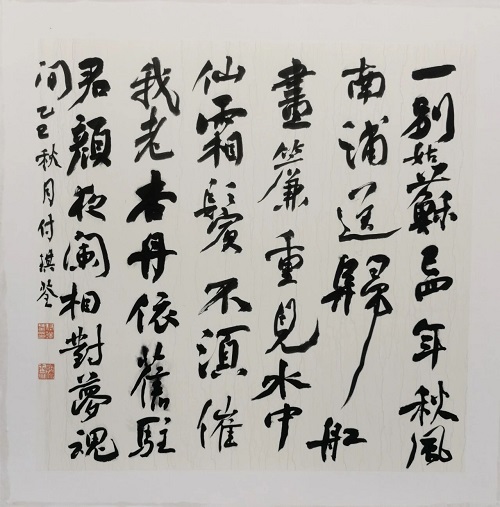 一别姑蘇已四年秋風
南浦送歸舡
畫簾重見水中
仙霜鬢不湏催
我老杏丹依舊駐
君顏夜闌相對夢魂
间乙巳秋月付祺